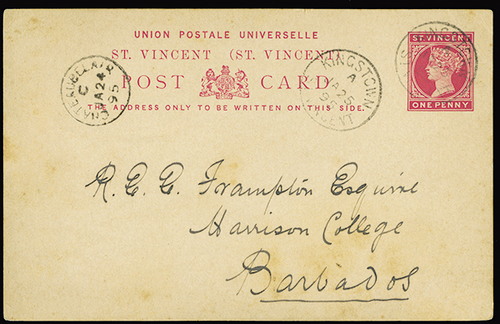 UNION POSTALE UNIVERSELLE
ST. VINCENT (ST. VINCENT)
POST CARD
THE ADDRESS ONLY TO BE WRITTEN ON THIS SIDE.
ST VINCENT
ONE PENNY
CHATEAUBELAIR
C
A 24
95
KINGSTOWN
A
95
R. C. C. Frampton Esquire
Harrison College
Barbados